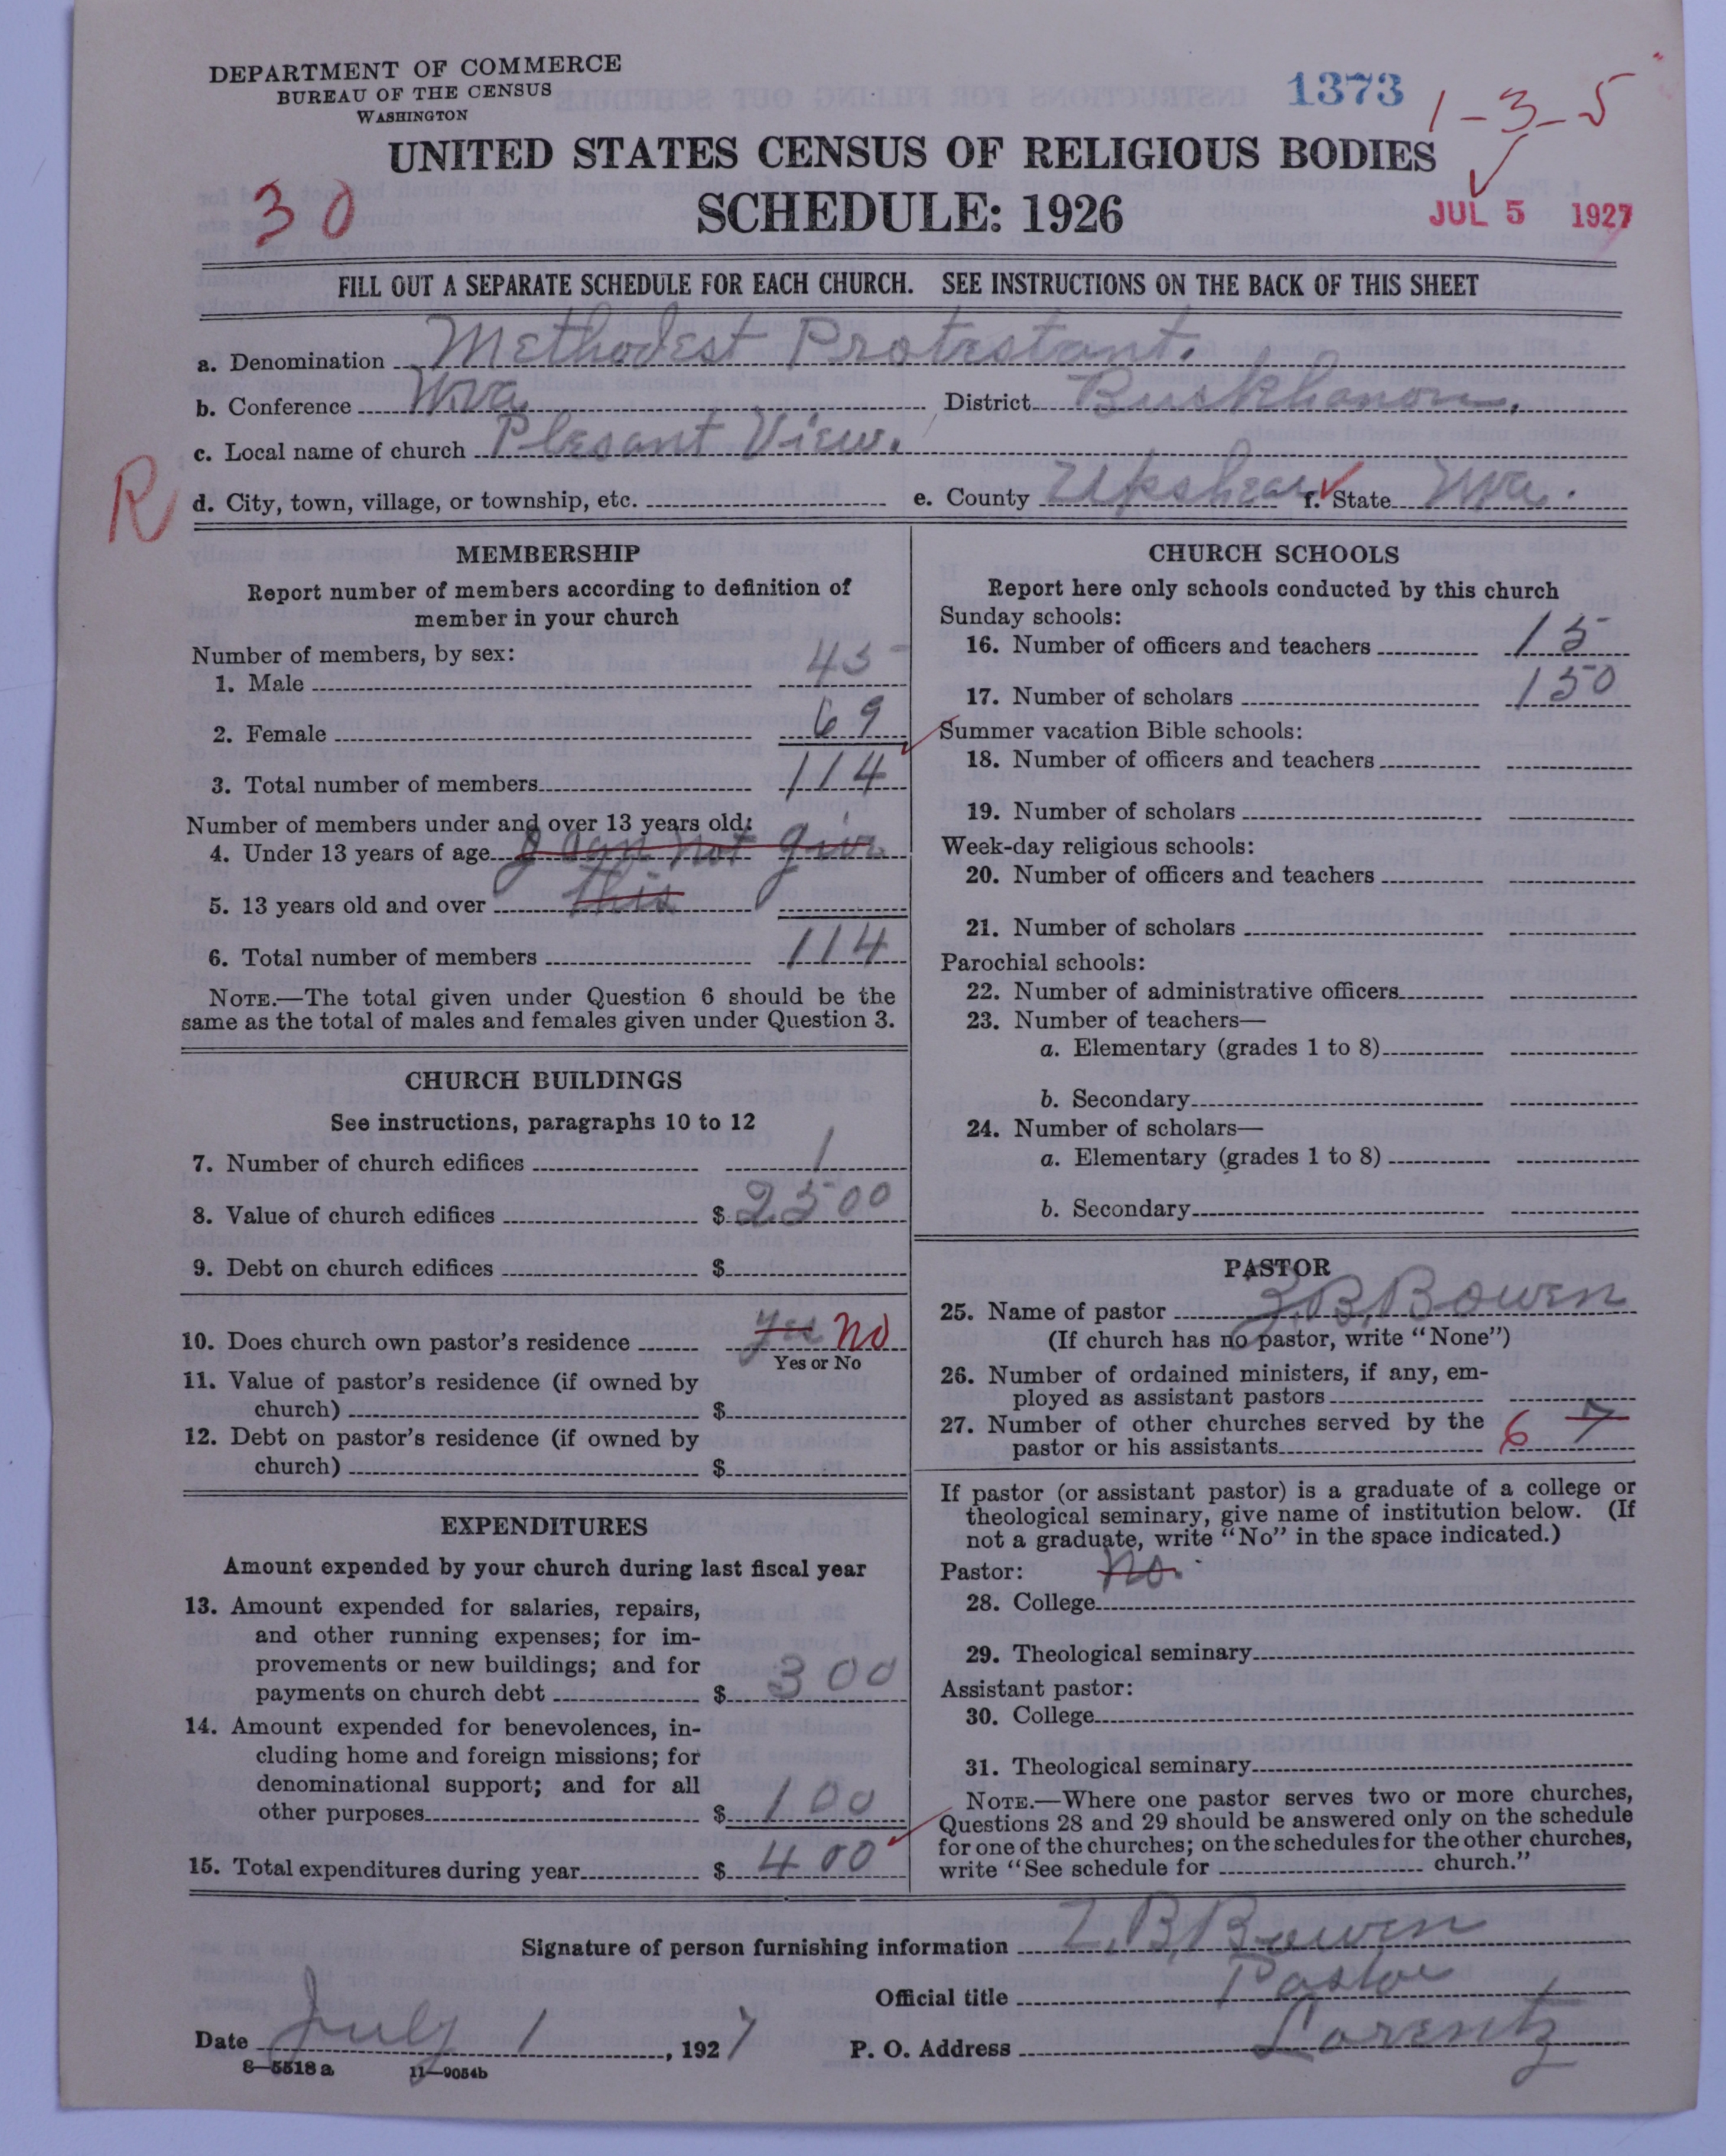 DEPARTMENT OF COMMERCE
BUREAU OF THE CENSUS
WASHINGTON
1373
1-3-5
UNITED STATES CENSUS OF RELIGIOUS BODIES
30
SCHEDULE: 1926
JUL 5 1927
FILL OUT A SEPARATE SCHEDULE FOR EACH CHURCH. SEE INSTRUCTIONS ON THE BACK OF THIS SHEET
a. Denomination Methodest Protestant.
b. Conference Wva District Buckhanon.
c. Local name of church Plesant View.
R
d. City, town, village, or township, etc. e. County Upshear f. State Wva.
MEMBERSHIP
Report number of members according to definition of
member in your church
Number of members, by sex:
1. Male 45
2. Female 69
3. Total number of members 114
Number of members under and over 13 years old:
4. Under 13 years of age I can not give
this
5. 13 years old and over
6. Total number of members 114
NOTE.—The total given under Question 6 should be the
same as the total of males and females given under Question 3.
CHURCH BUILDINGS
See instructions, paragraphs 10 to 12
7. Number of church edifices 1
8. Value of church edifices $ 2500
9. Debt on church edifices $
10. Does church own pastor's residence yes no
Yes or No
11. Value of pastor's residence (if owned by
church) $
12. Debt on pastor's residence (if owned by
church) $
EXPENDITURES
Amount expended by your church during last fiscal year
13. Amount expended for salaries, repairs,
and other running expenses; for im-
provements or new buildings; and for
payments on church debt $ 300
14. Amount expended for benevolences, in-
cluding home and foreign missions; for
denominational support; and for all
other purposes $ 100
15. Total expenditures during year $ 400
CHURCH SCHOOLS
Report here only schools conducted by this church
Sunday schools:
16. Number of officers and teachers 15
17. Number of scholars 150
Summer vacation Bible schools:
18. Number of officers and teachers
19. Number of scholars
Week-day religious schools:
20. Number of officers and teachers
21. Number of scholars
Parochial schools:
22. Number of administrative officers
23. Number of teachers—
a. Elementary (grades 1 to 8)
b. Secondary
24. Number of scholars—
a. Elementary (grades 1 to 8)
b. Secondary
PASTOR
25. Name of pastor Z,B,Bowen
(If church has no pastor, write "None")
26. Number of ordained ministers, if any, em-
ployed as assistant pastors
27. Number of other churches served by the
pastor or his assistants 6 7
If pastor (or assistant pastor) is a graduate of a college or
theological seminary, give name of institution below. (If
not a graduate, write "No" in the space indicated.)
Pastor: No.
28. College
29. Theological seminary
Assistant pastor:
30. College
31. Theological seminary
NOTE.—Where one pastor serves two or more churches,
Questions 28 and 29 should be answered only on the schedule
for one of the churches; on the schedules for the other churches,
write "See schedule for church."
Signature of person furnishing information Z,B,Bowen
Official title Pastor
Date July 1, 1927 P. O. Address Lorentz
8—5518 a 11—9054b